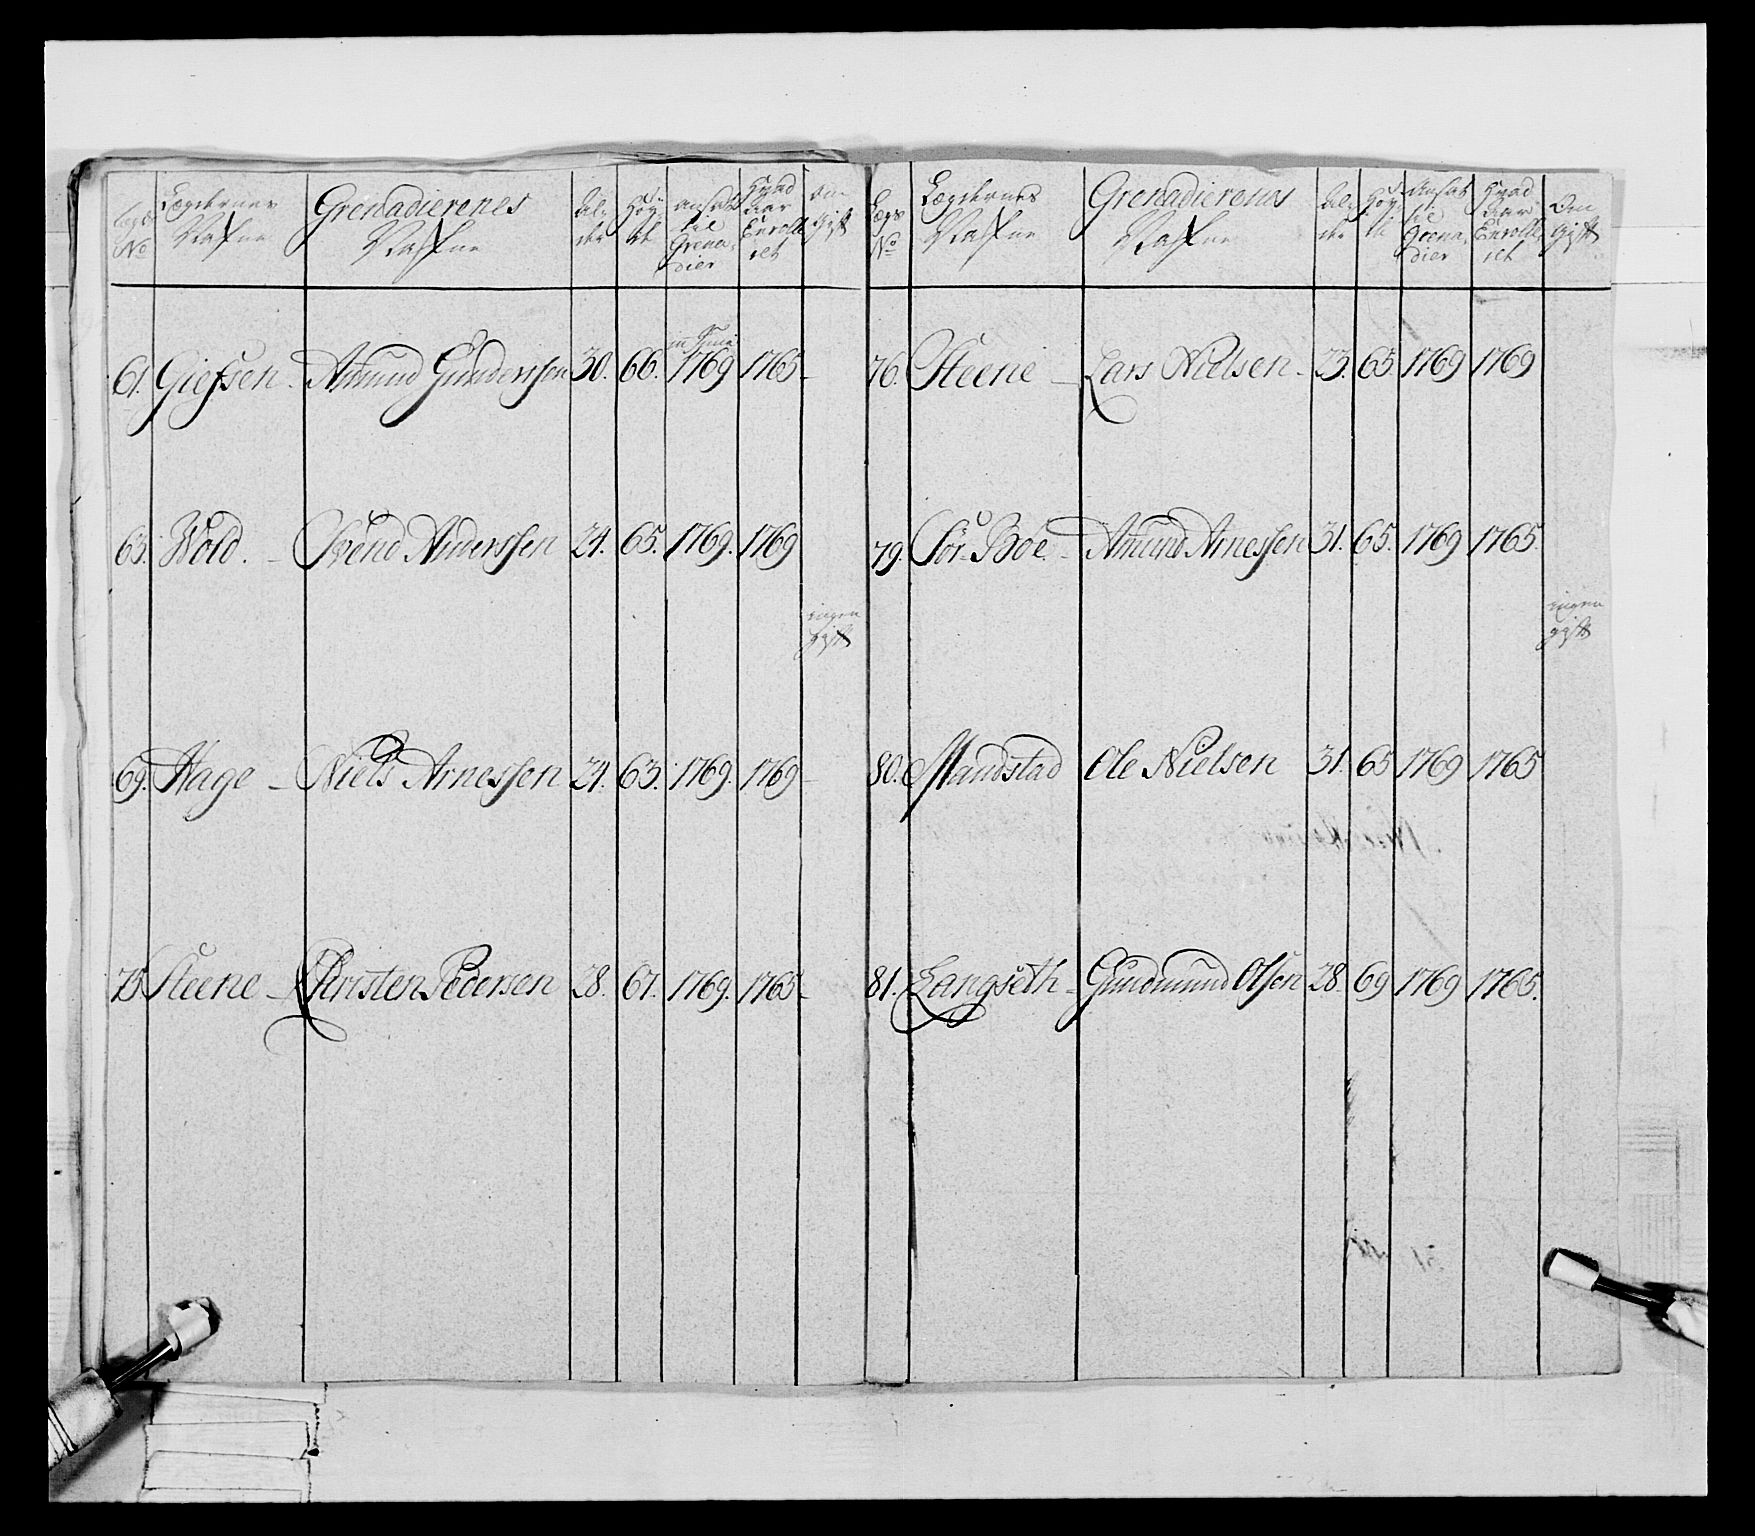 Lægs No | Lægdernes Nafne | Grenadierenes Nafne | Al- der | Høy- de | ansat til Grena- dier | Hvad Aar Enroll- eret | Om Gift
61. Giefsen - Amund Gunderssen 30. 66. 1769 1765 -
63. Wold. - Svend Anderssen 24. 65. 1769. 1769
ingen gift
69. Hage - Niels Arnessen 24. 63. 1769. 1769 -
75 Steene - Christen Pedersen 28. 67. 1769. 1765 -
Lægs No | Lægdernes Nafne | Grenadierenes Nafne | Al- der | Høy- de | Ansat til Grena- dier | Hvad Aar Enroll- eret | Om Gift
76. Steene - Lars Nielsen - 23. 65. 1769 1769
79. Sør-Boe - Amund Arnessen 31. 65. 1769 1765.
ingen gift
80. Mandstad Ole Nielsen 31. 65 1769 1765
81. Langseth - Gundmund Olsen 28. 69 1769 1765.